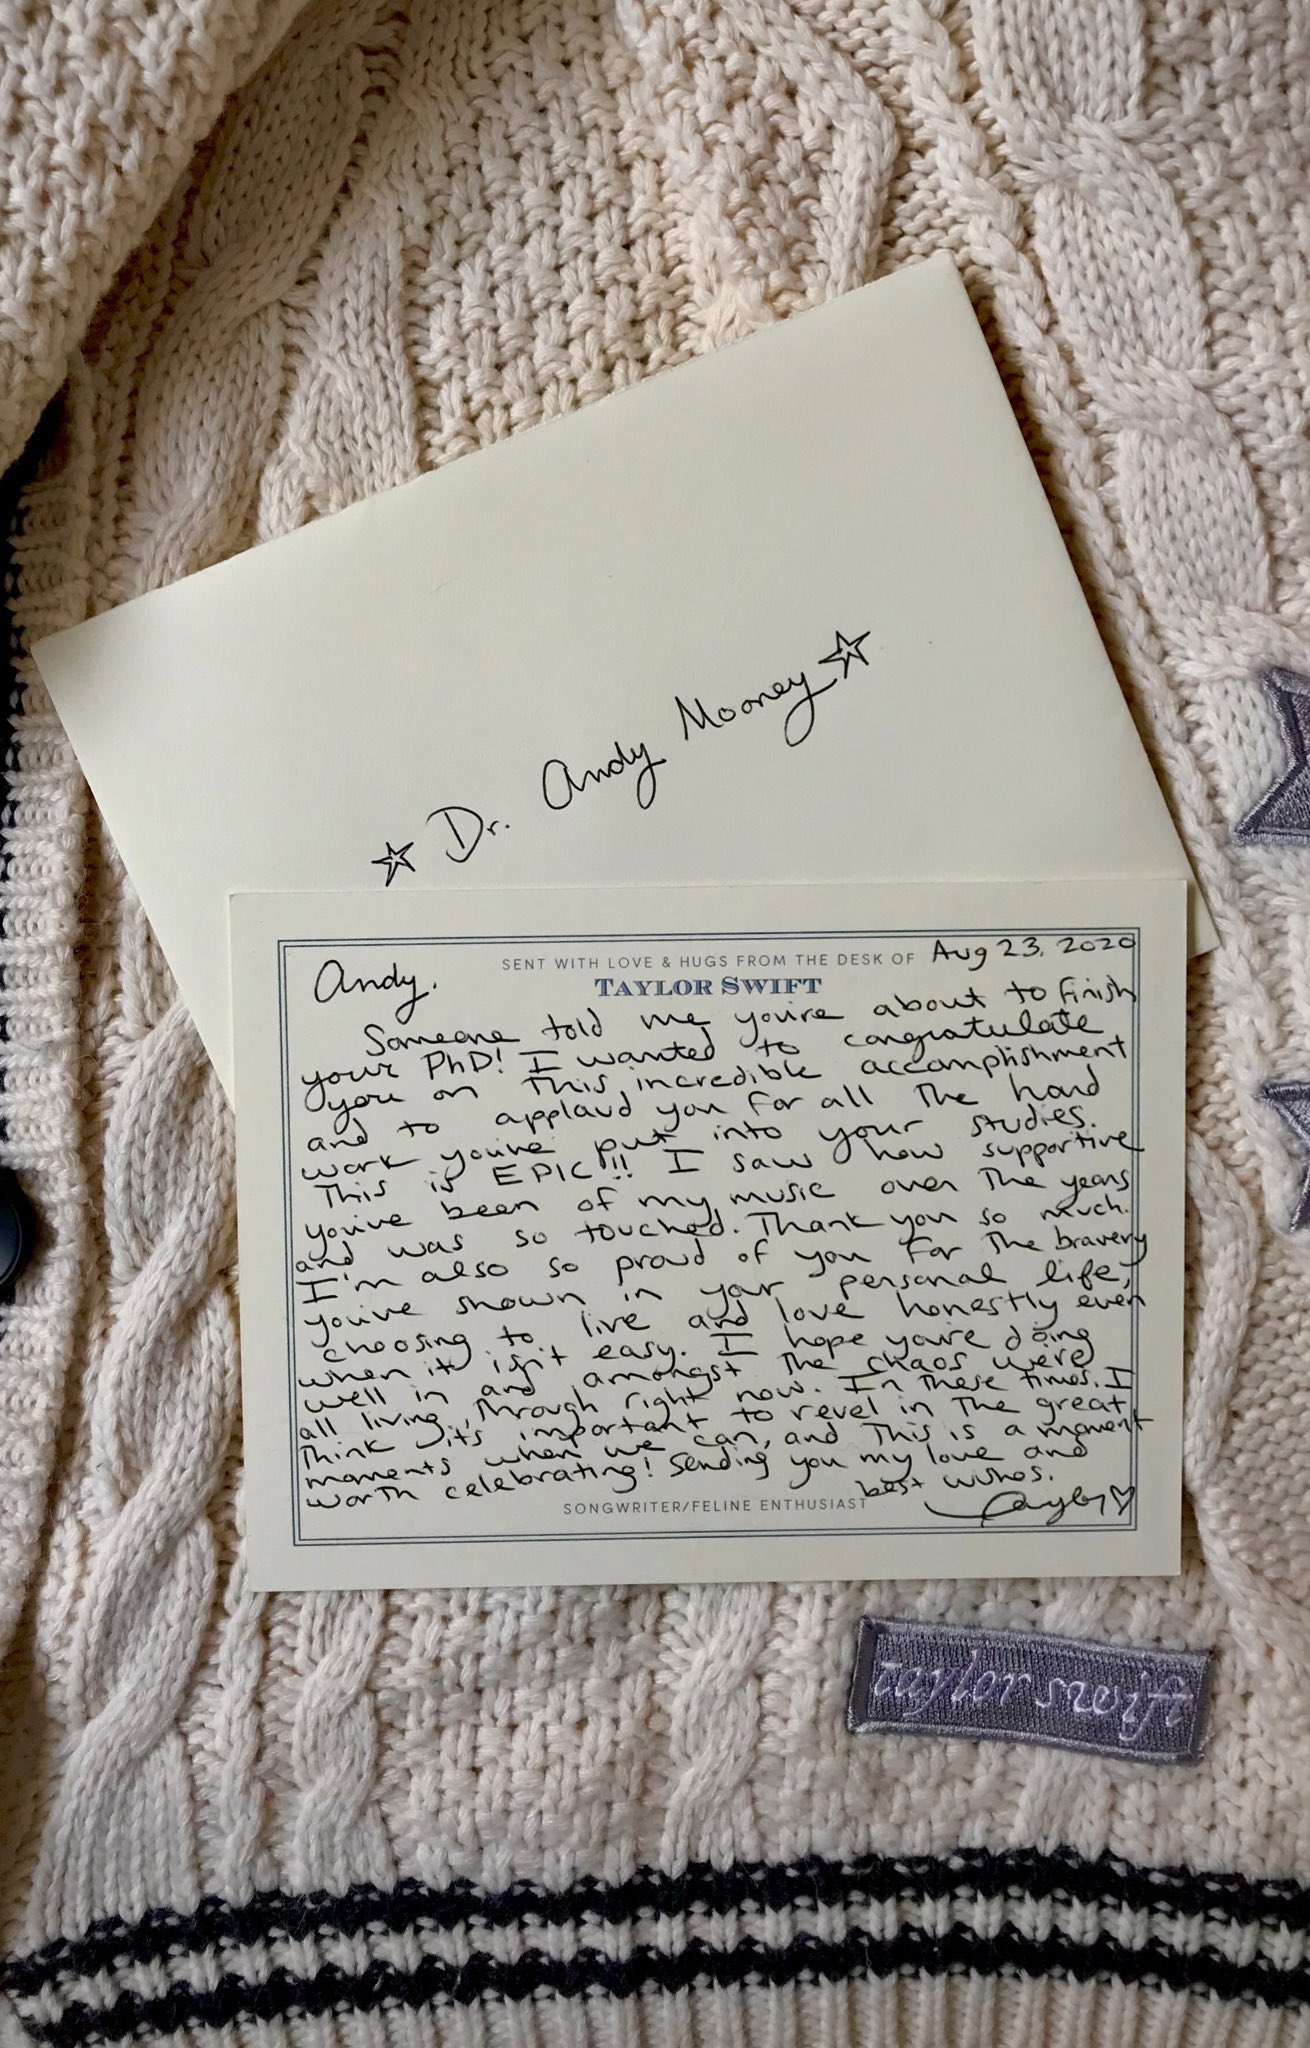 ☆ Dr. Andy Mooney ☆
SENT WITH LOVE & HUGS FROM THE DESK OF
TAYLOR SWIFT
Aug 23, 2020
Andy,
Someone told me you're about to finish
your PhD! I wanted to congratulate
you on this incredible accomplishment
and to applaud you for all the hard
work you've put into your studies.
This is EPIC!!! I saw how supportive
you've been of my music over the years
and was so touched. Thank you so much.
I'm also so proud of you for the bravery
you've shown in your personal life,
choosing to live and love honestly even
when it isn't easy. I hope you're doing
well in and amongst the chaos we're
all living through right now. In these times, I
think it's important to revel in the great
moments when we can, and this is a moment
worth celebrating! Sending you my love and
best wishes.
Taylor♡
SONGWRITER/FELINE ENTHUSIAST
taylor swift